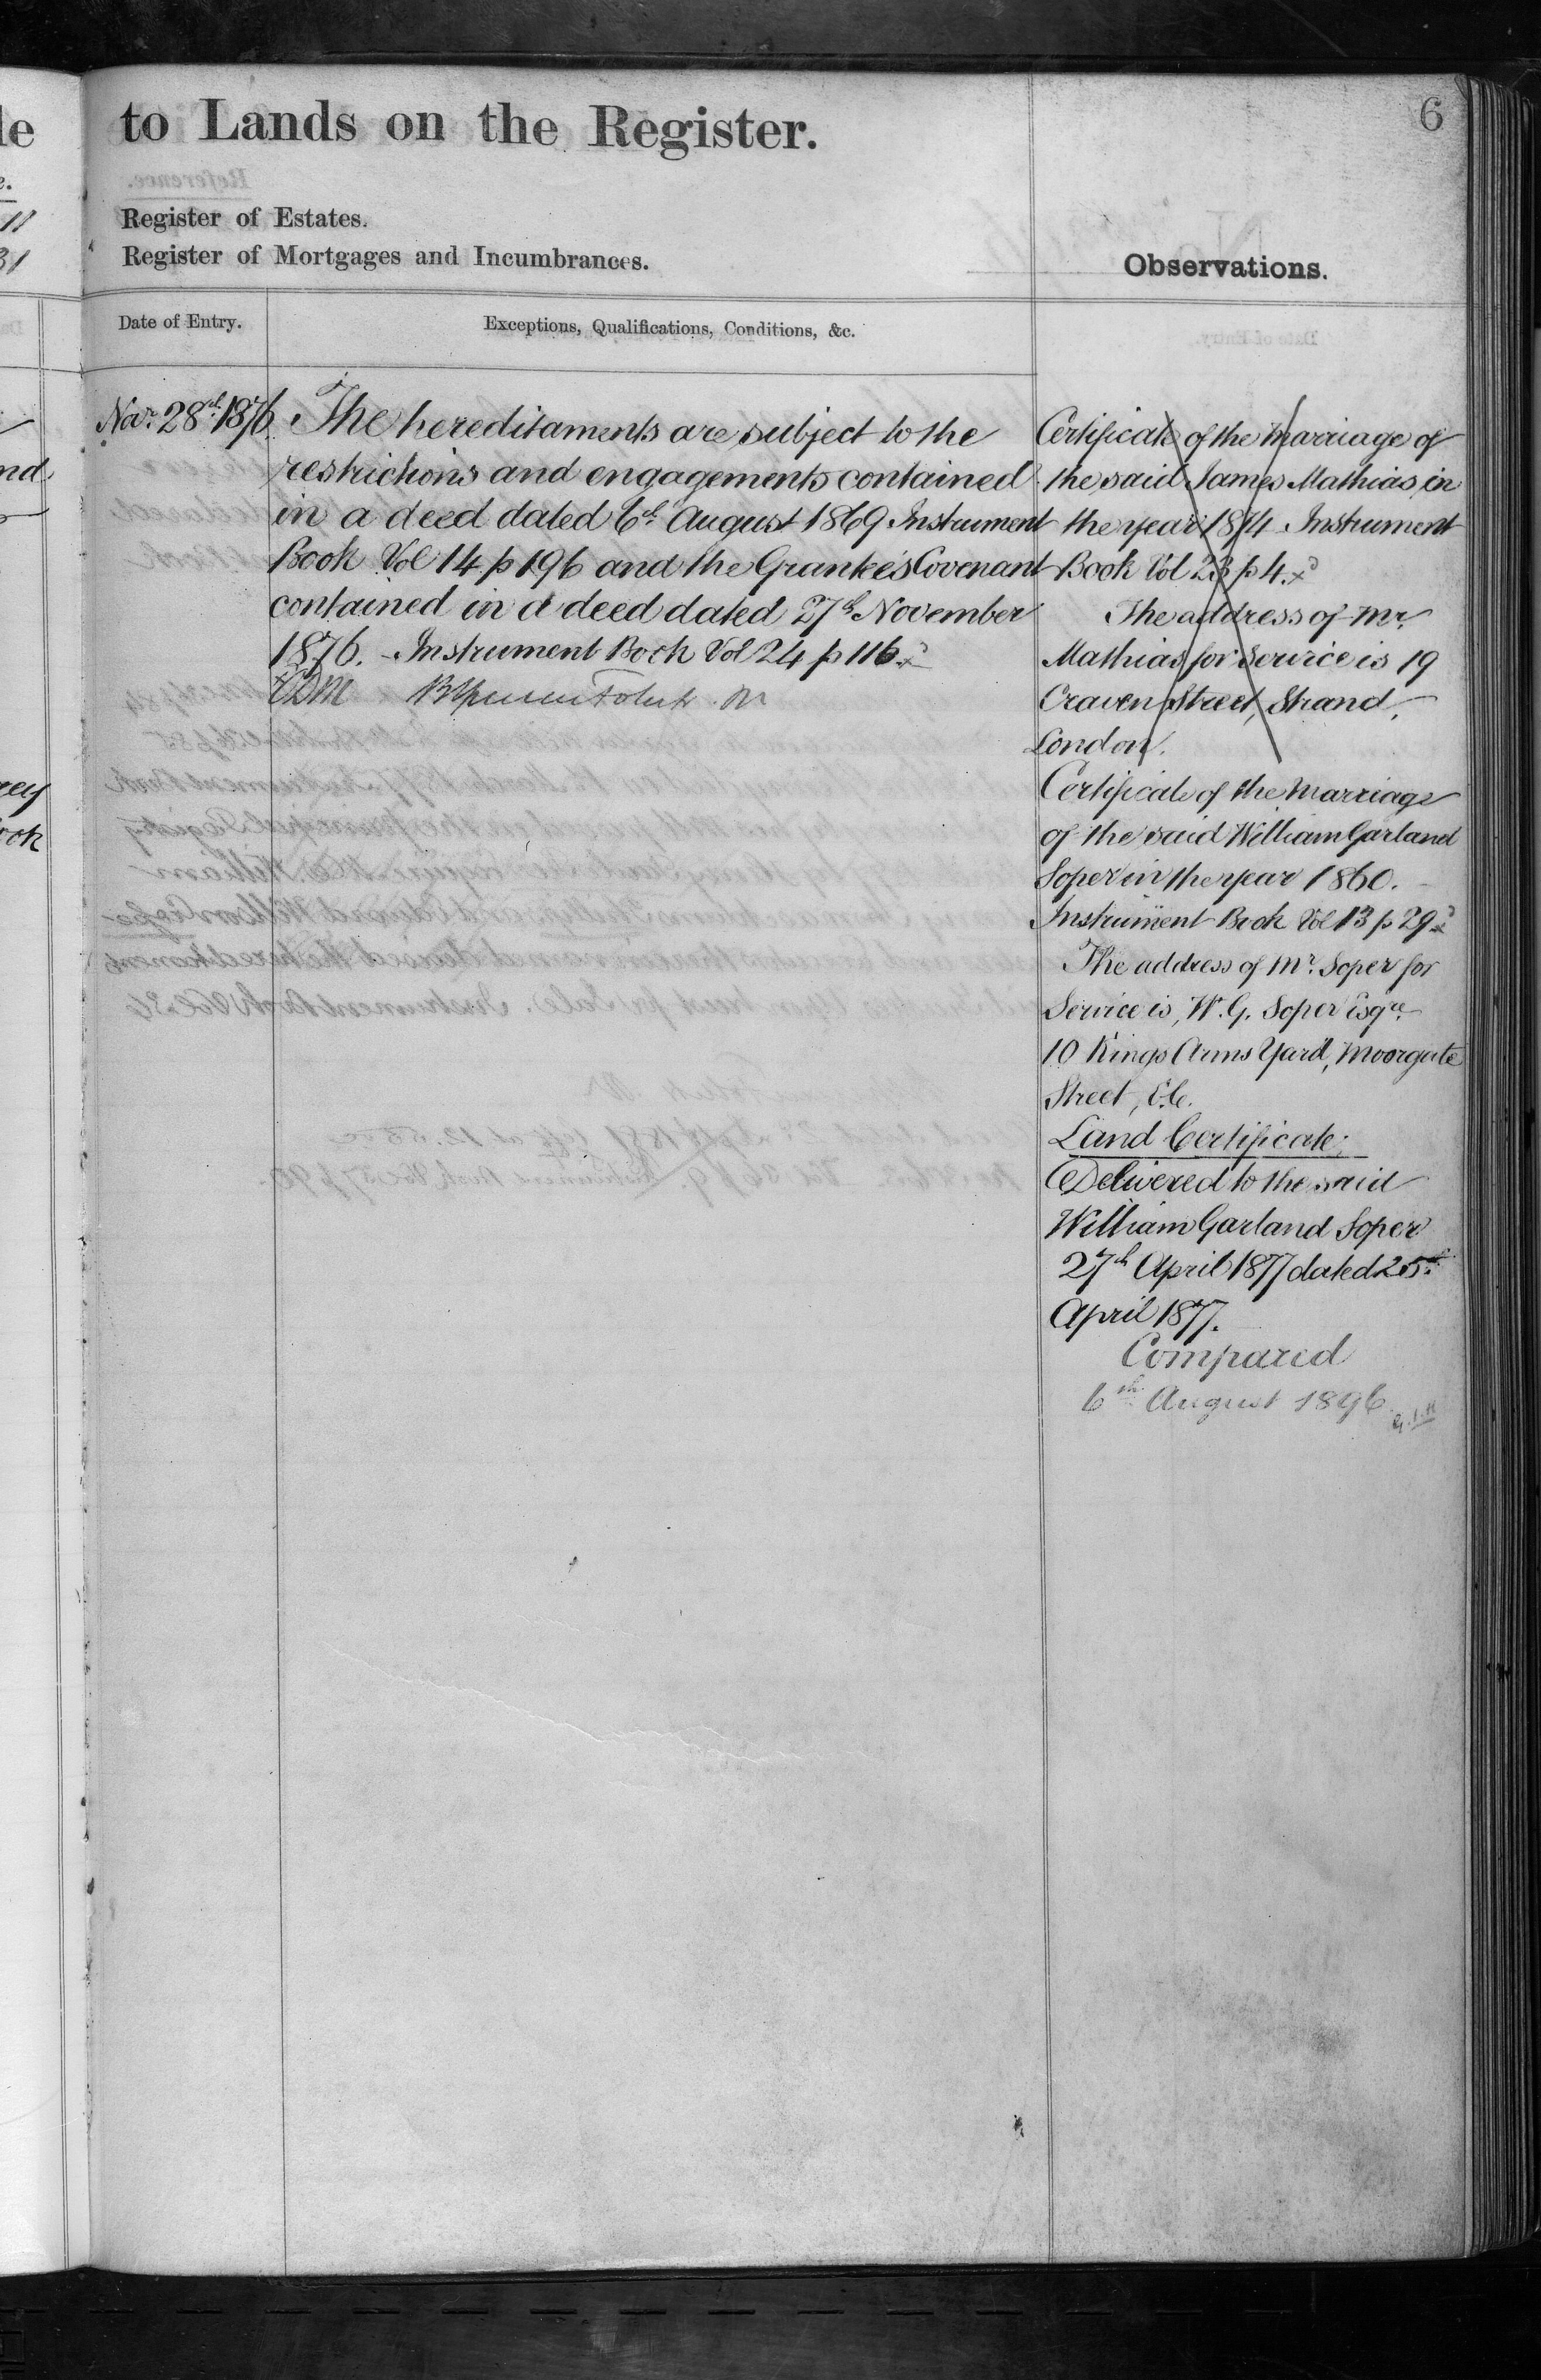 to Lands on the Register.
6
Register of Estates.
Register of Mortgages and Incumbrances.
Observations.
Date of Entry.
Exceptions, Qualifications, Conditions, &c.
Novr. 28th. 1876
The hereditaments are subject to the
restrictions and engagements contained
in a deed dated 6th August 1869 Instrument
Book Vol 14 p 196 and the Grantee's Covenant
contained in a deed dated 27th November
1876. Instrument Book Vol 24 p 116
Certificate of the Marriage of
the said James Mathias in
the year 1874 Instrument
Book Vol 23 p 4.
The address of Mr.
Mathias for Service is 19
Craven Street, Strand,
London.
Certificate of the Marriage
of the said William Garland
Soper in the year 1860.
Instrument Book Vol 13 p 29
The address of Mr. Soper for
Service is, W. G. Soper Esqre.
10 Kings Arms Yard, Moorgate
Street, E.C.
Land Certificate:
Delivered to the said
William Garland Soper
27th April 1877 dated 25th
April 1877.
Compared
6th August 1896